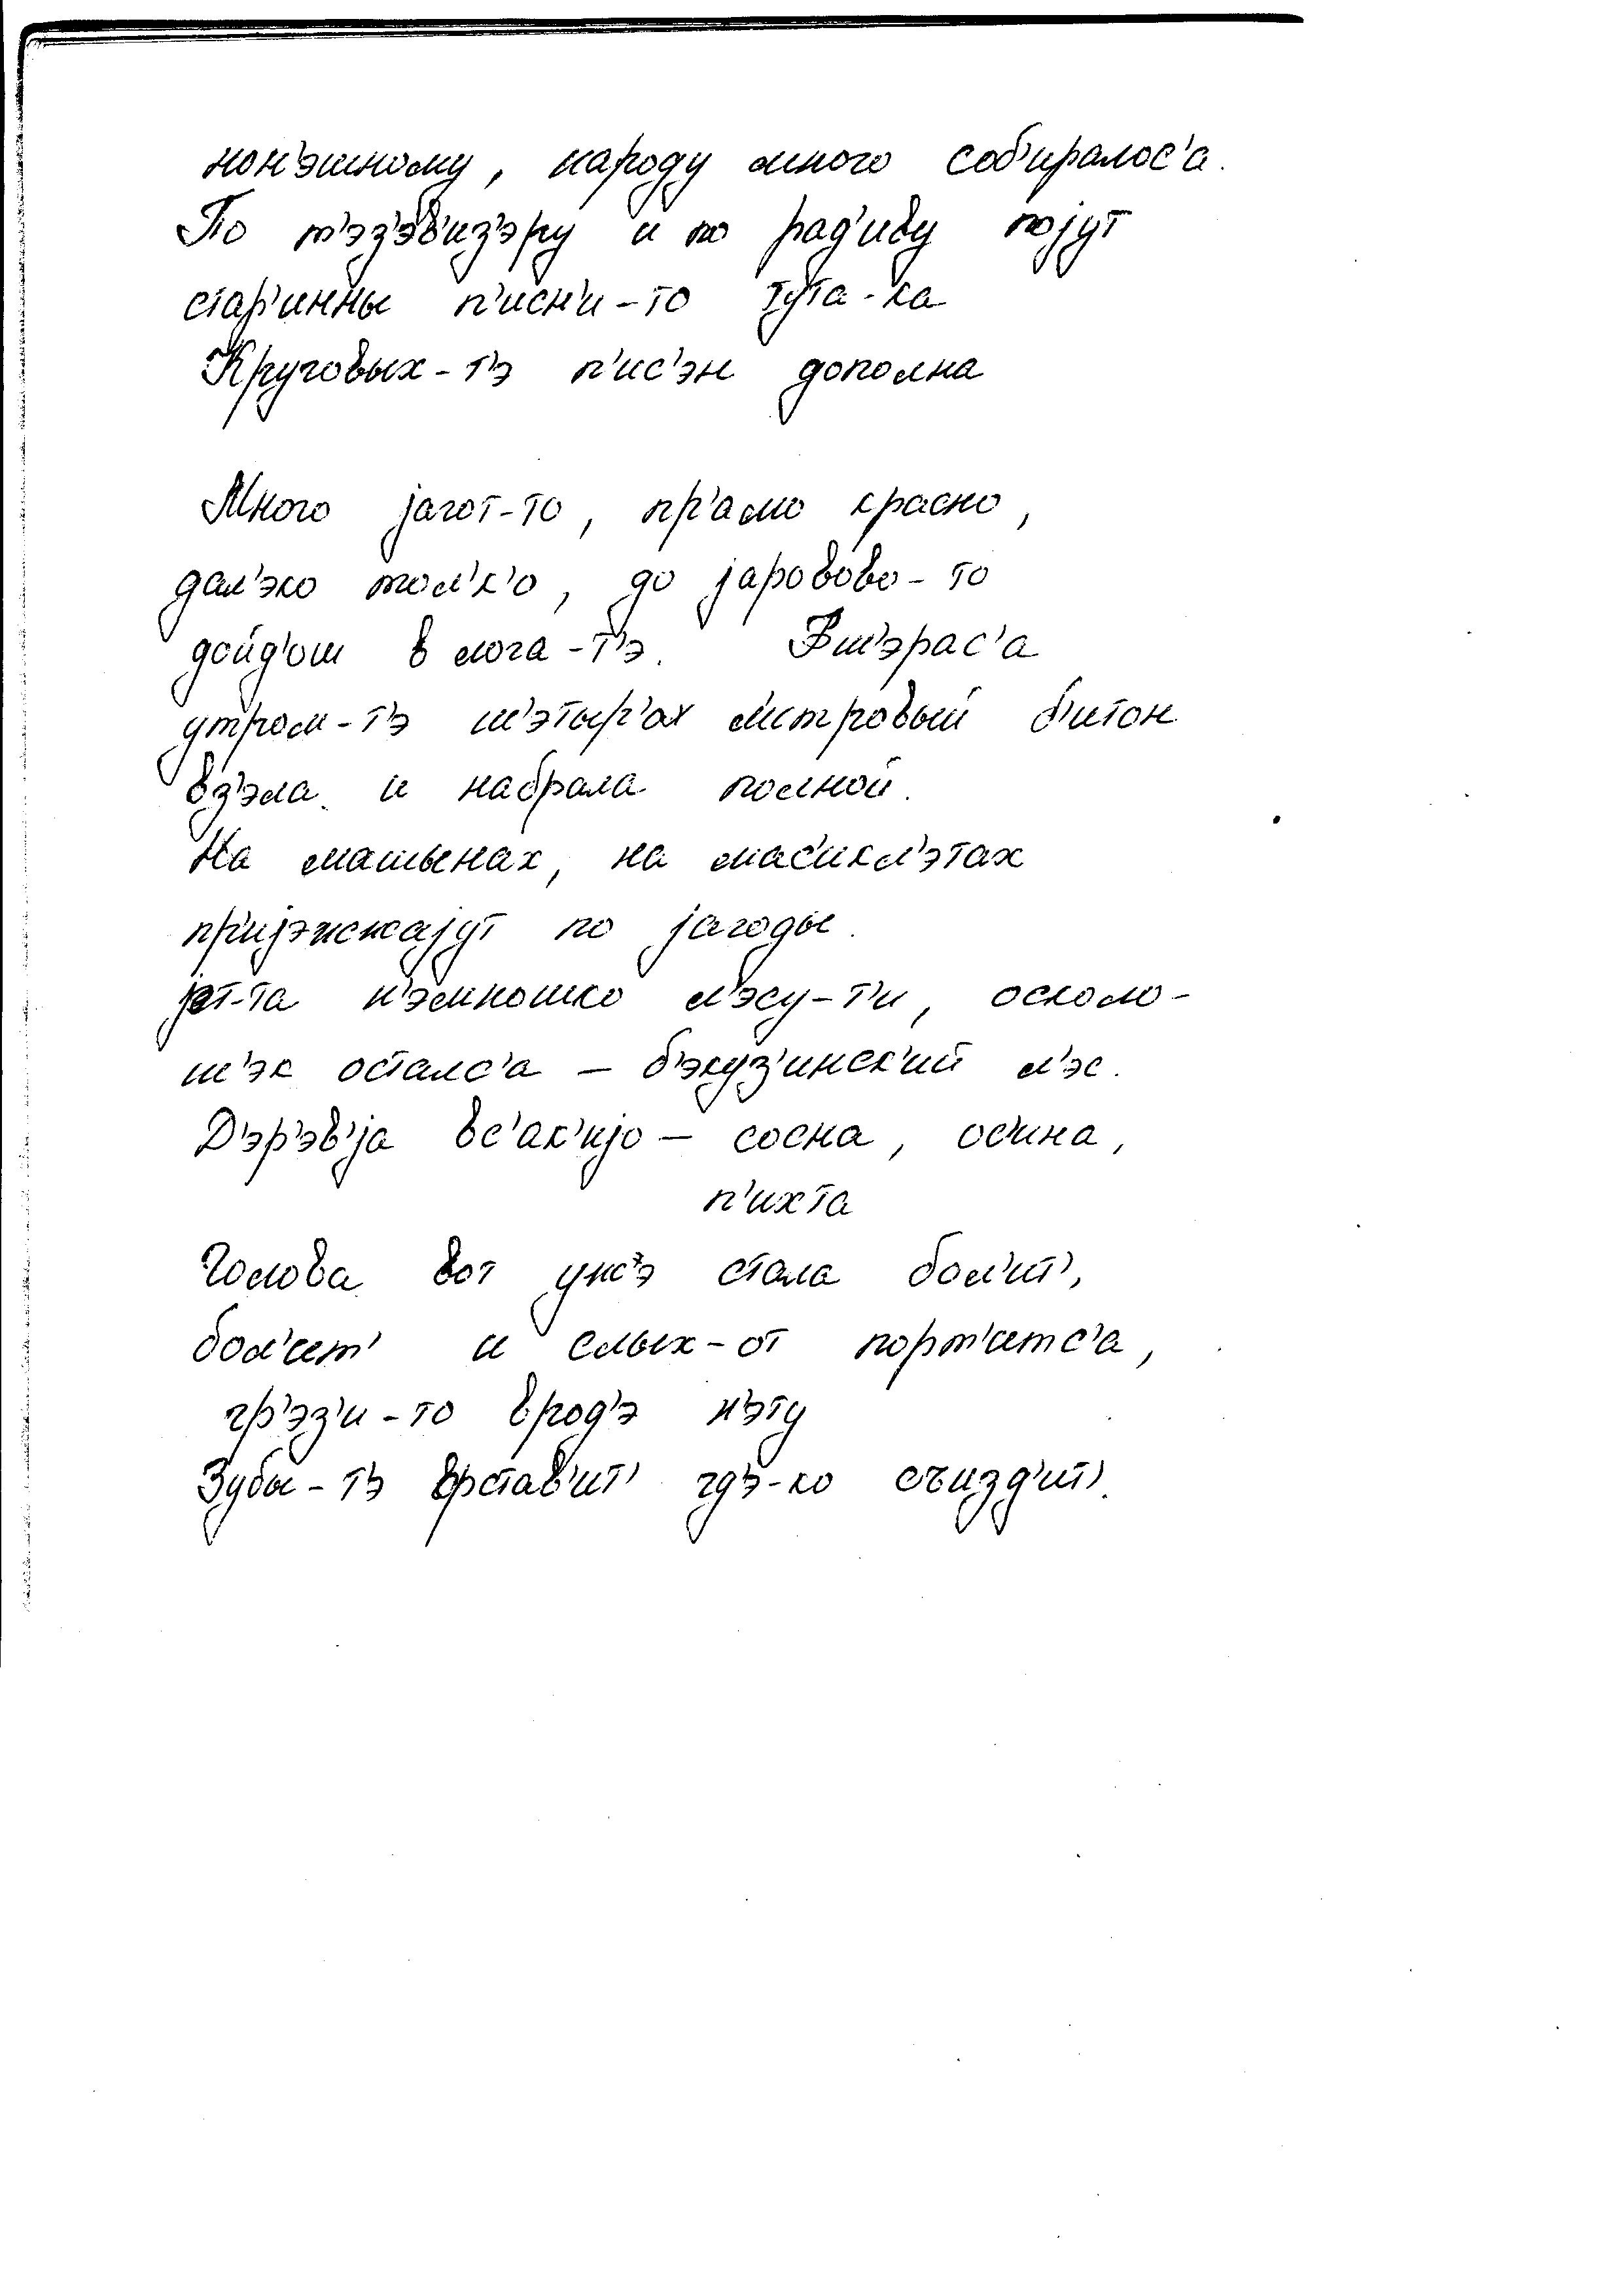 нон'эшному, народу много соб'иралос'а.
По т'эз'эв'из'эру и по рад'иву појут
стар'инны п'исн'и-то тута-ка
Круговых-т'э п'ис'эн дополна
Много јагот-то, пр'амо красно,
дал'эко тол'к'о, до јаровово-то
дойд'ош в лога-т'э. Вш'эрас'а
утром-т'э ш'этыр'ох л'итровый б'итон
вз'эла и набрала полной.
На машынах, на мас'икл'этах
пр'ијэжжајут по јагоды.
јэт-та н'эмношко л'эсу-т'и, осколо-
ш'эк осталс'а — б'экуз'инск'ий л'эс.
Д'эр'эв'ја вс'ак'ијо — сосна, ос'ина,
п'ихта
Голова вот ужэ стала бол'ит',
бол'ит и слых-от порт'итс'а,
гр'эз'и-то врод'э н'эту
Зубы-т'э вставит' гд'э-ко съизд'ит'.